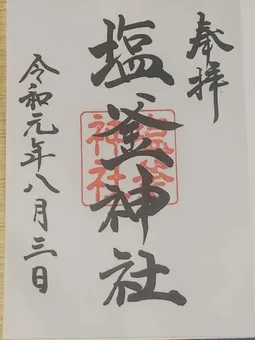 奉拝
塩釜神社
塩釜神社
令和元年八月三日